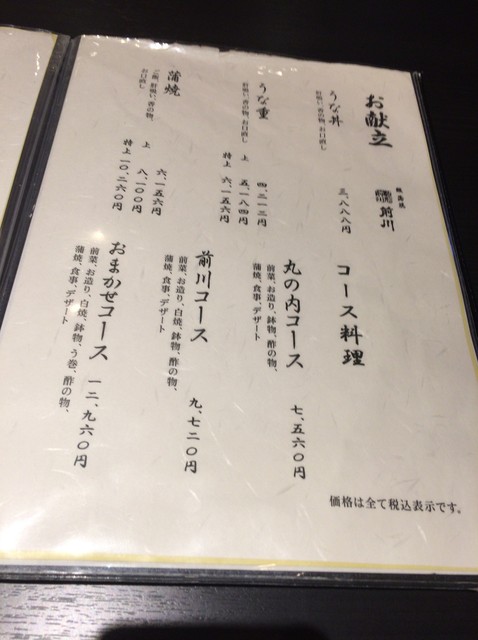 お献立
前川
うな丼
肝吸い、香の物、お口直し
三、八八八円
うな重
肝吸い、香の物、お口直し
四、二一二円
上 五、一八四円
特上 六、一五六円
蒲焼
ご飯、肝吸い、香の物、
お口直し
六、一五六円
上 八、一〇〇円
特上 一〇、二六〇円
コース料理
丸の内コース
前菜、お造り、鉢物、酢の物、
蒲焼、食事、デザート
七、五六〇円
前川コース
前菜、お造り、白焼、鉢物、酢の物、
蒲焼、食事、デザート
九、七二〇円
おまかせコース
前菜、お造り、白焼、鉢物、う巻、酢の物、
蒲焼、食事、デザート
一二、九六〇円
価格は全て税込表示です。